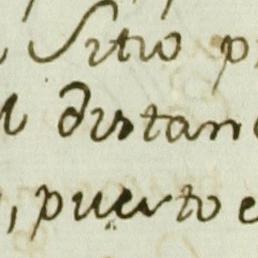 Sitio p
distan
, puerto e